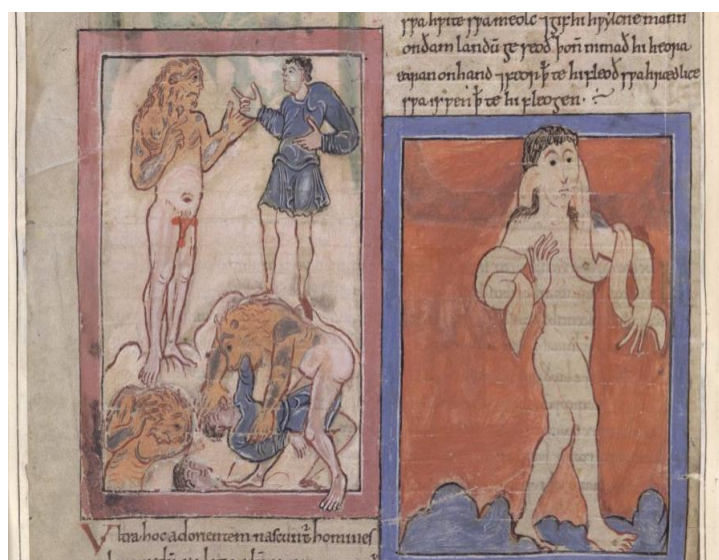 sƿa hƿite sƿa meolc ⁊ gif hi hƿylcne mann
on ðam landū ge seoð þoñ nimað hi heora
earan on hand ⁊ hi fleoð sƿa hrædlice
sƿa is ƿen ꝥ te hi fleogen.
Vltra hoc ad orientem nascunt̃ homines